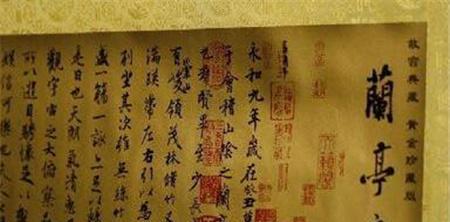 蘭亭
故宮典藏 黃金珍藏版
永和九年歲在癸丑
于會稽山陰之蘭
羣賢畢至少長
有崇山峻領茂林脩竹
湍暎帶左右引以為
列坐其次雖無絲竹
盛一觴一詠亦足以暢
是日也天朗氣清
觀宇宙之大俯察品
所以遊目騁懷足以
娛信可樂也夫人